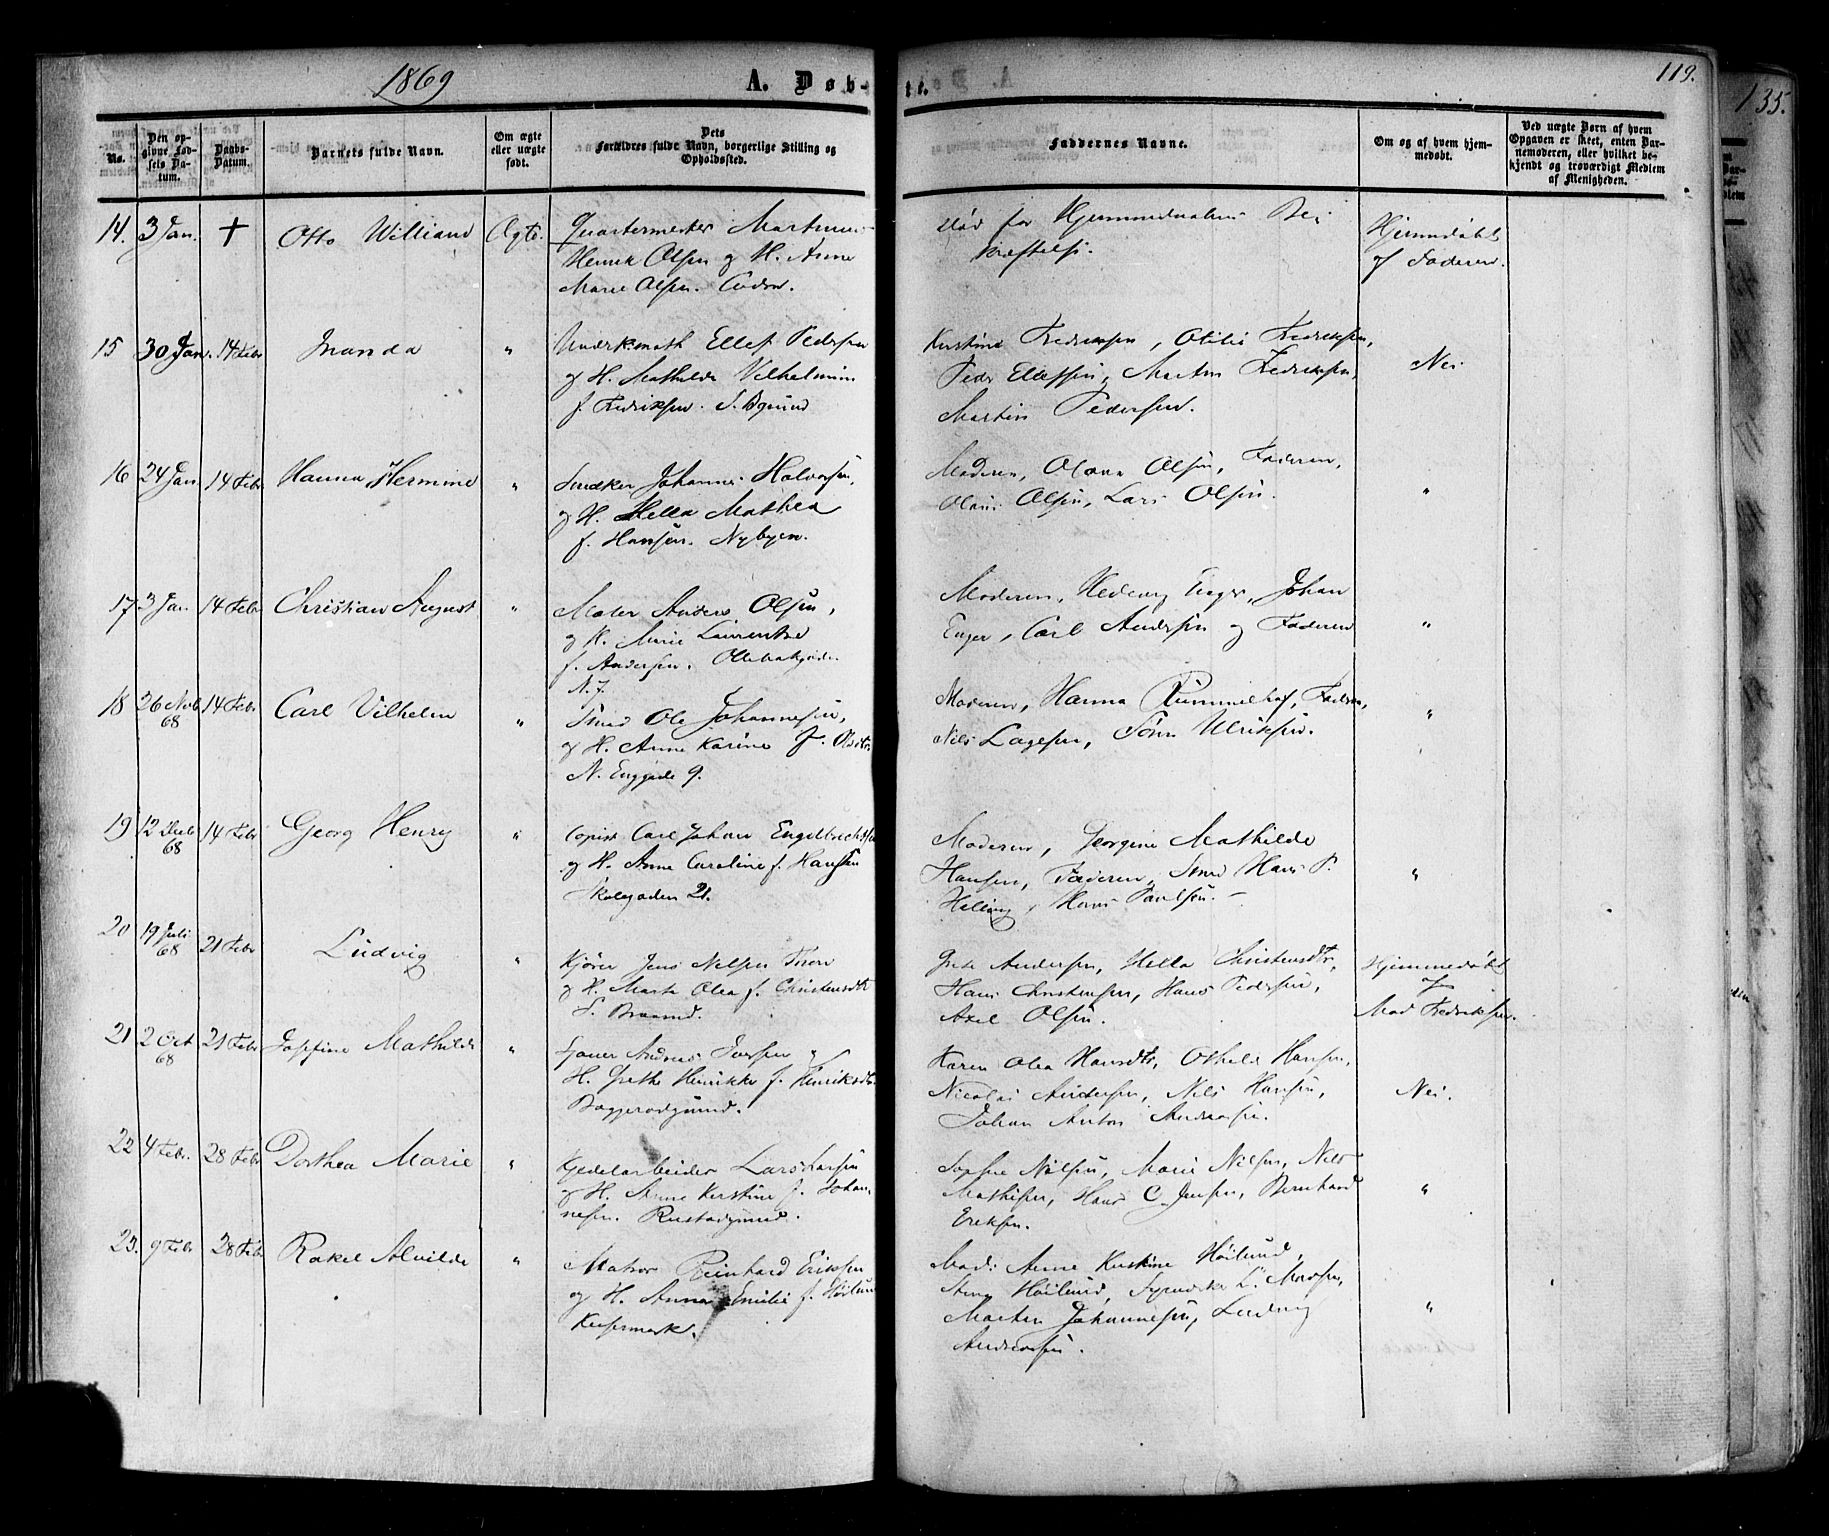 1869
A. Døb-
te.
119.
135.
No.
Den op-
givne Fød-
sels Da-
tum.
Daabs-
Datum.
Barnets fulde Navn.
Om ægte
eller uægte
født.
Dets
Forældres fulde Navn, borgerlige Stilling og
Opholdssted.
Faddernes Navne.
Om og af hvem hjem-
medøbt.
Ved uægte Børn af hvem
Opgaven er skeet, enten Bar-
nemoderen, eller hvilket be-
kjendt og troværdigt Medlem
af Menigheden.
14. 3 Jan. + Otto William Ægte. Quartermester
Henrik Olsen og H. Anne
Marie Olsen.
død før Hjemmedaabens Be-
kræftelse.
Hjemmedøbt
af Faderen.
15 30 Jan. 14 Febr Inanda " Ellef Pedersen
og H. Mathilde Vilhelmine
f. Fredriksen.
Kirstine Fredriksen, Otilie Fredriksen,
Peder Ellefsen, Martin Fredriksen,
Martin Pedersen.
Nei
16 24 Jan 14 Febr Hanna Hermine " Snedker Johannes Halvorsen,
og H. Hella Mathea
f. Hansen. Nybyen.
Moderen, Olava Olsen, Faderen,
Olaus Olsen, Lars Olsen.
"
17 3 Jan 14 Febr Christian August " Maler Anders Olsen,
og H. Marie Laurentze
f. Andersen.
N. 7.
Moderen, Hedevig Enger, Johan
Enger, Carl Andersen og Faderen
"
18 26 Nvb 68 14 Febr Carl Vilhelm " Smed Ole Johannesen,
og H. Anne Karine f. Olsdtr
N. Enggade 9.
Moderen, Hanna Rummelhof, Faderen,
Nils Lagesen, Sønn Ulriksen.
"
19 12 Decb 68 14 Febr Georg Henry " Copist Carl Johan Engelbrechtsen
og H. Anne Caroline f. Hansen
Skolegaden 21.
Moderen, Georgine Mathilde
Hansen, Faderen, Smed Hans P.
Helling, Hans Paulsen.
"
20 19 Juli 68 21 Febr Ludvig " Kjører Jens Nelsen
og H. Marte Olea f. Christensdtr
Andersen, Hella Christensdtr,
Hans Christensen, Hans Pedersen,
Axel Olsen.
Hjemmedøbt
af
Mad Fredriksen.
21 2 Oct 68 21 Febr Josefine Mathilde " Andreas
H. Grethe Henrikke f. Henriksdtr
Karen Olea Hansdtr, Othilde Hansen,
Nicolai Andersen, Nils Hansen,
Johan Anton Andreasen.
Nei.
22 4 Febr. 28 Febr Dorthea Marie " Kjedelarbeider Lars Larsen
og H. Anne Kirstine f. Johan-
nesen. Rustadgrund.
Sophie Nilsen, Marie Nilsen, Nils
Mathisen, Hans C. Jensen, Bernhard
Eriksen.
"
23. 9 Febr 28 Febr Rakel Alvilde " Matros Reinhard Eriksen
og H. Anna Emilie f. Høilund
Mad: Anne Kirstine Høilund,
Høilund, L. Morsen,
Morten Johannesen, Ludvig
Andreassen.
"